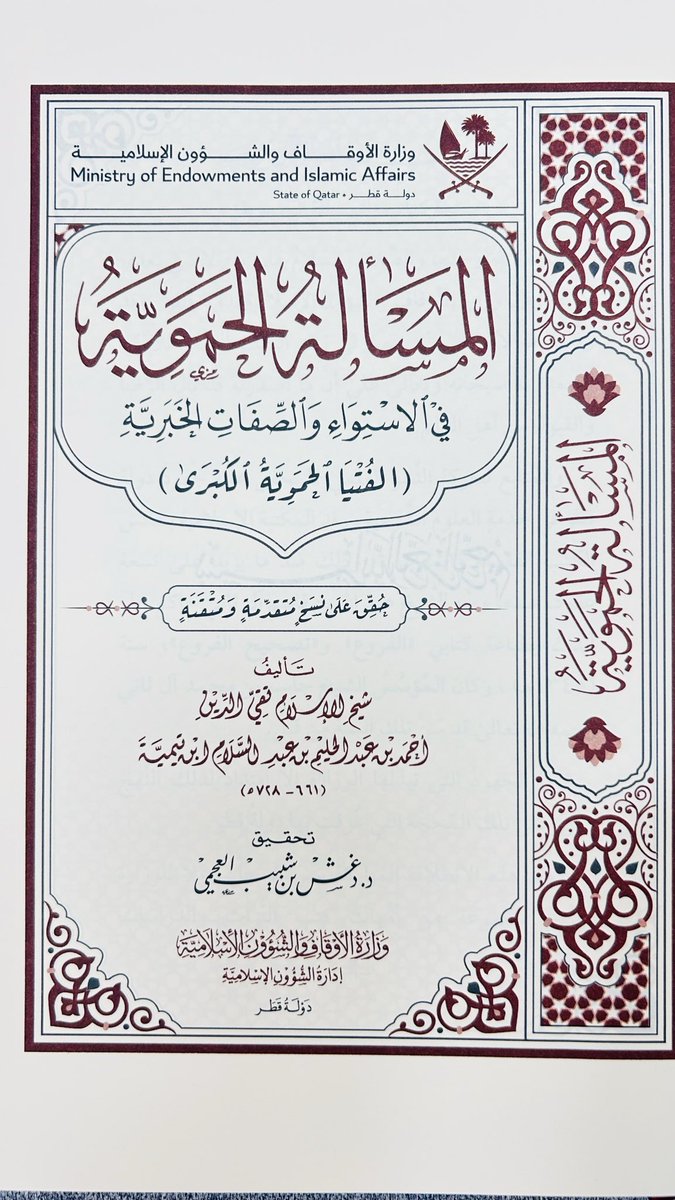 وزارة الأوقاف والشؤون الإسلامية
Ministry of Endowments and Islamic Affairs
State of Qatar • دولة قطر
المَسْأَلَةُ الحَمَوِيَّةُ
فِي ٱلاسْتِوَاءِ وَٱلصِّفَاتِ الخَبَرِيَّةِ
(الفُتْيَا ٱلحَمَوِيَّةُ ٱلكُبْرَىٰ)
حُقِّقَ عَلَىٰ نُسَخٍ مُتَقَدِّمَةٍ وَمُتْقَنَةٍ
تَأليفُ
شَيْخِ الإِسْلَامِ تَقِيِّ الدِّينِ
أَحْمَدَ بْنِ عَبْدِ الحَلِيمِ بْنِ عَبْدِ السَّلَامِ ابْنِ تَيْمِيَّةَ
(٦٦١ - ٧٢٨هـ)
تحقيق
د. دغش بن شبيب العجمي
وَزَارَةُ الأَوْقَافِ وَالشُّؤُونِ الإِسْلَامِيَّةِ
إِدَارَةُ الشُّؤُونِ الإِسْلَامِيَّةِ
دَوْلَةُ قَطَر
المَسْأَلَةُ الحَمَوِيَّةُ